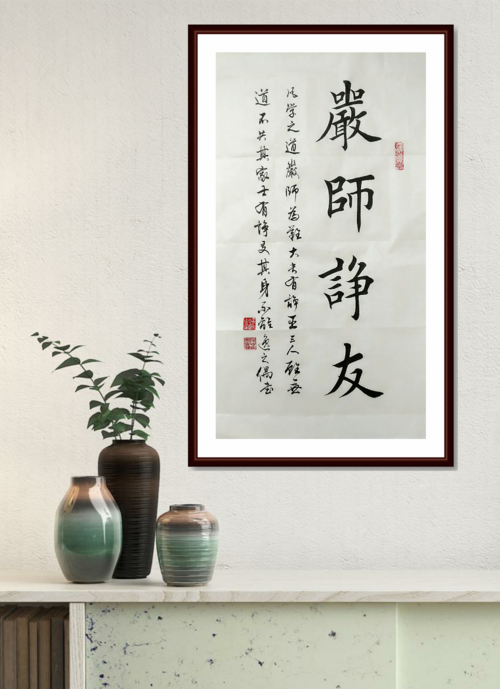 嚴師諍友
凡学之道嚴師為難大夫有諍臣三人雖無
道不失其家士有諍友其身不離之偶書